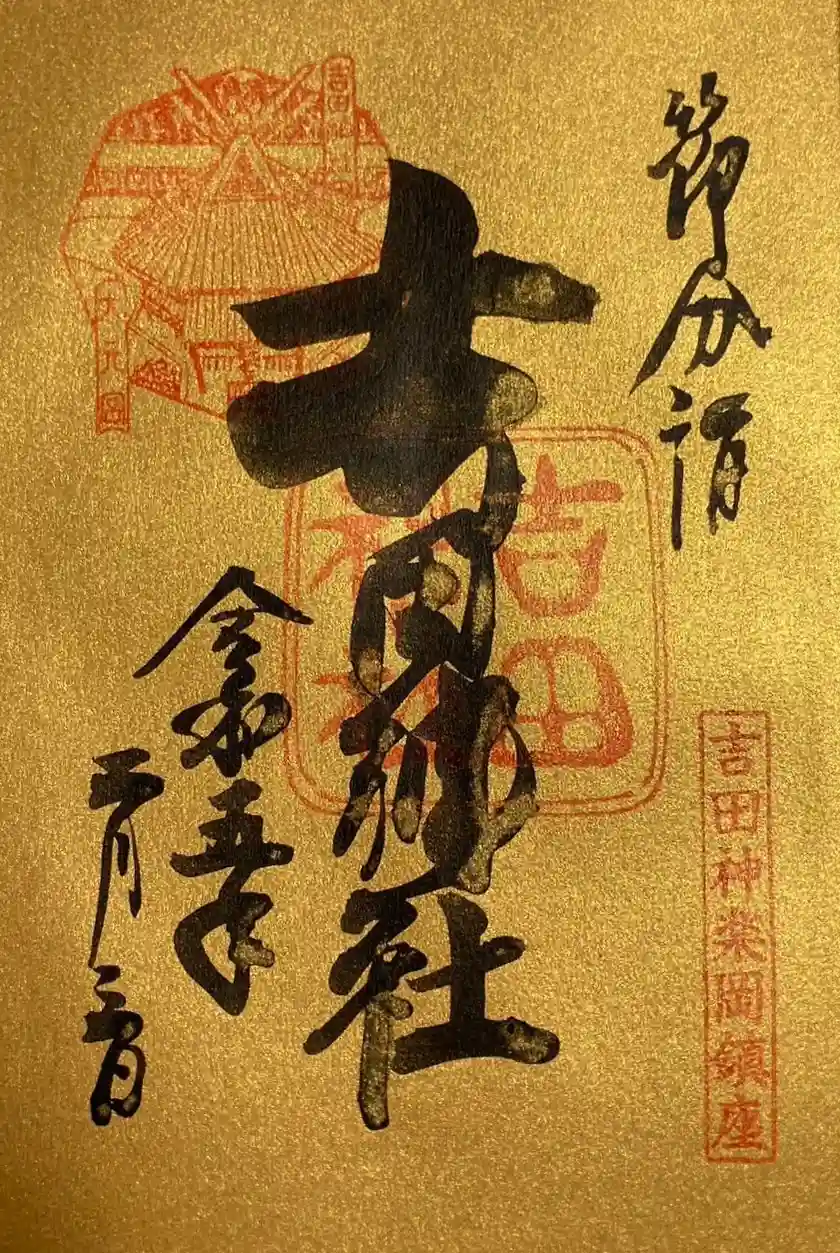 節分詣
吉田神楽岡鎮座
吉田神社
吉田
神社
吉田神社
大元宮
令和五年
二月三日